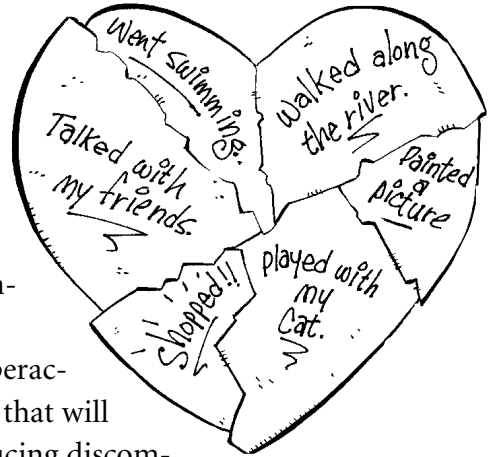 Went swimming.
Walked along
the river.
Talked with
my friends.
Painted
a
picture
Shopped!!
played with
my
Cat.
n-
perac-
that will
ucing discom-